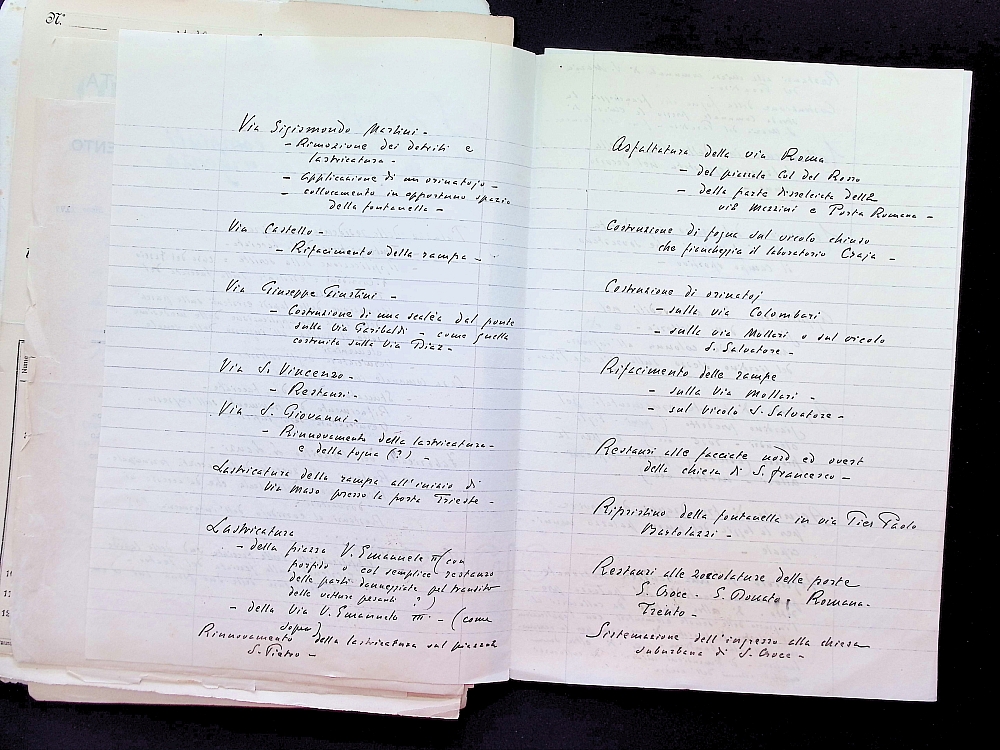 N.
Via Sigismondo Martini -
- Rimozione dei detriti e
lastricatura -
- Applicazione di un orinatojo -
- collocamento in opportuno spazio
della fontanella -
Via Castello -
- Rifacimento della rampa -
Via Giuseppe Giustini -
- Costruzione di una scalèa dal ponte
sulla via Garibaldi - come quella
costruita sulla via Diaz -
Via S. Vincenzo -
- Restauri -
Via S. Giovanni -
- Rinnovamento della lastricatura -
e della fogna (?) -
Lastricatura della rampa all'inizio di
via Maso presso la porta Trieste -
Lastricatura
- della piazza V. Emanuele II (con
porfido o col semplice restauro
delle parti danneggiate pel transito
delle vetture pesanti ?)
- della via V. Emanuele III - (come
sopra)
Rinnovamento della lastricatura sul piazzale
S. Pietro -
Asfaltatura della via Roma
- del piazzale Col del Rosso
- della parte disselciata delle
vie Mazzini e Porta Romana -
Costruzione di fogna sul vicolo chiuso
che fiancheggia il laboratorio Craja -
Costruzione di orinatoj
- sulla via Colombari
- sulla via Mollari o sul vicolo
S. Salvatore -
Rifacimento delle rampe
- sulla via Mollari -
- sul vicolo S. Salvatore -
Restauri alle facciate nord ed ovest
della chiesa di S. Francesco -
Ripristino della fontanella in via Pier Paolo
Bartolazzi -
Restauri alle zoccolature delle porte
S. Croce - S. Donato - Romana -
Trento -
Sistemazione dell'ingresso alla chiesa
suburbana di S. Croce -